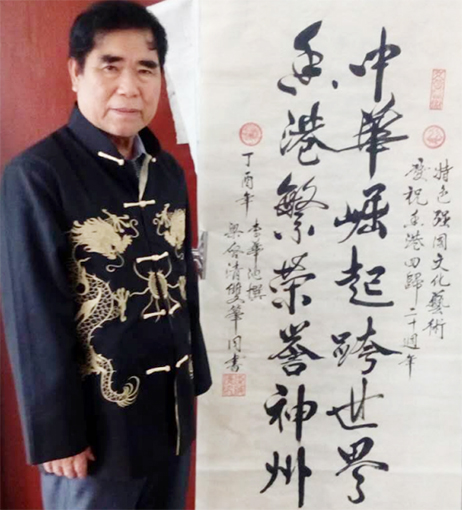 特色强国文化藝術
慶祝香港回歸二十週年
中華崛起跨世界
香港繁荣誉神州
丁酉年 李華池撰
梁合清雙筆同書